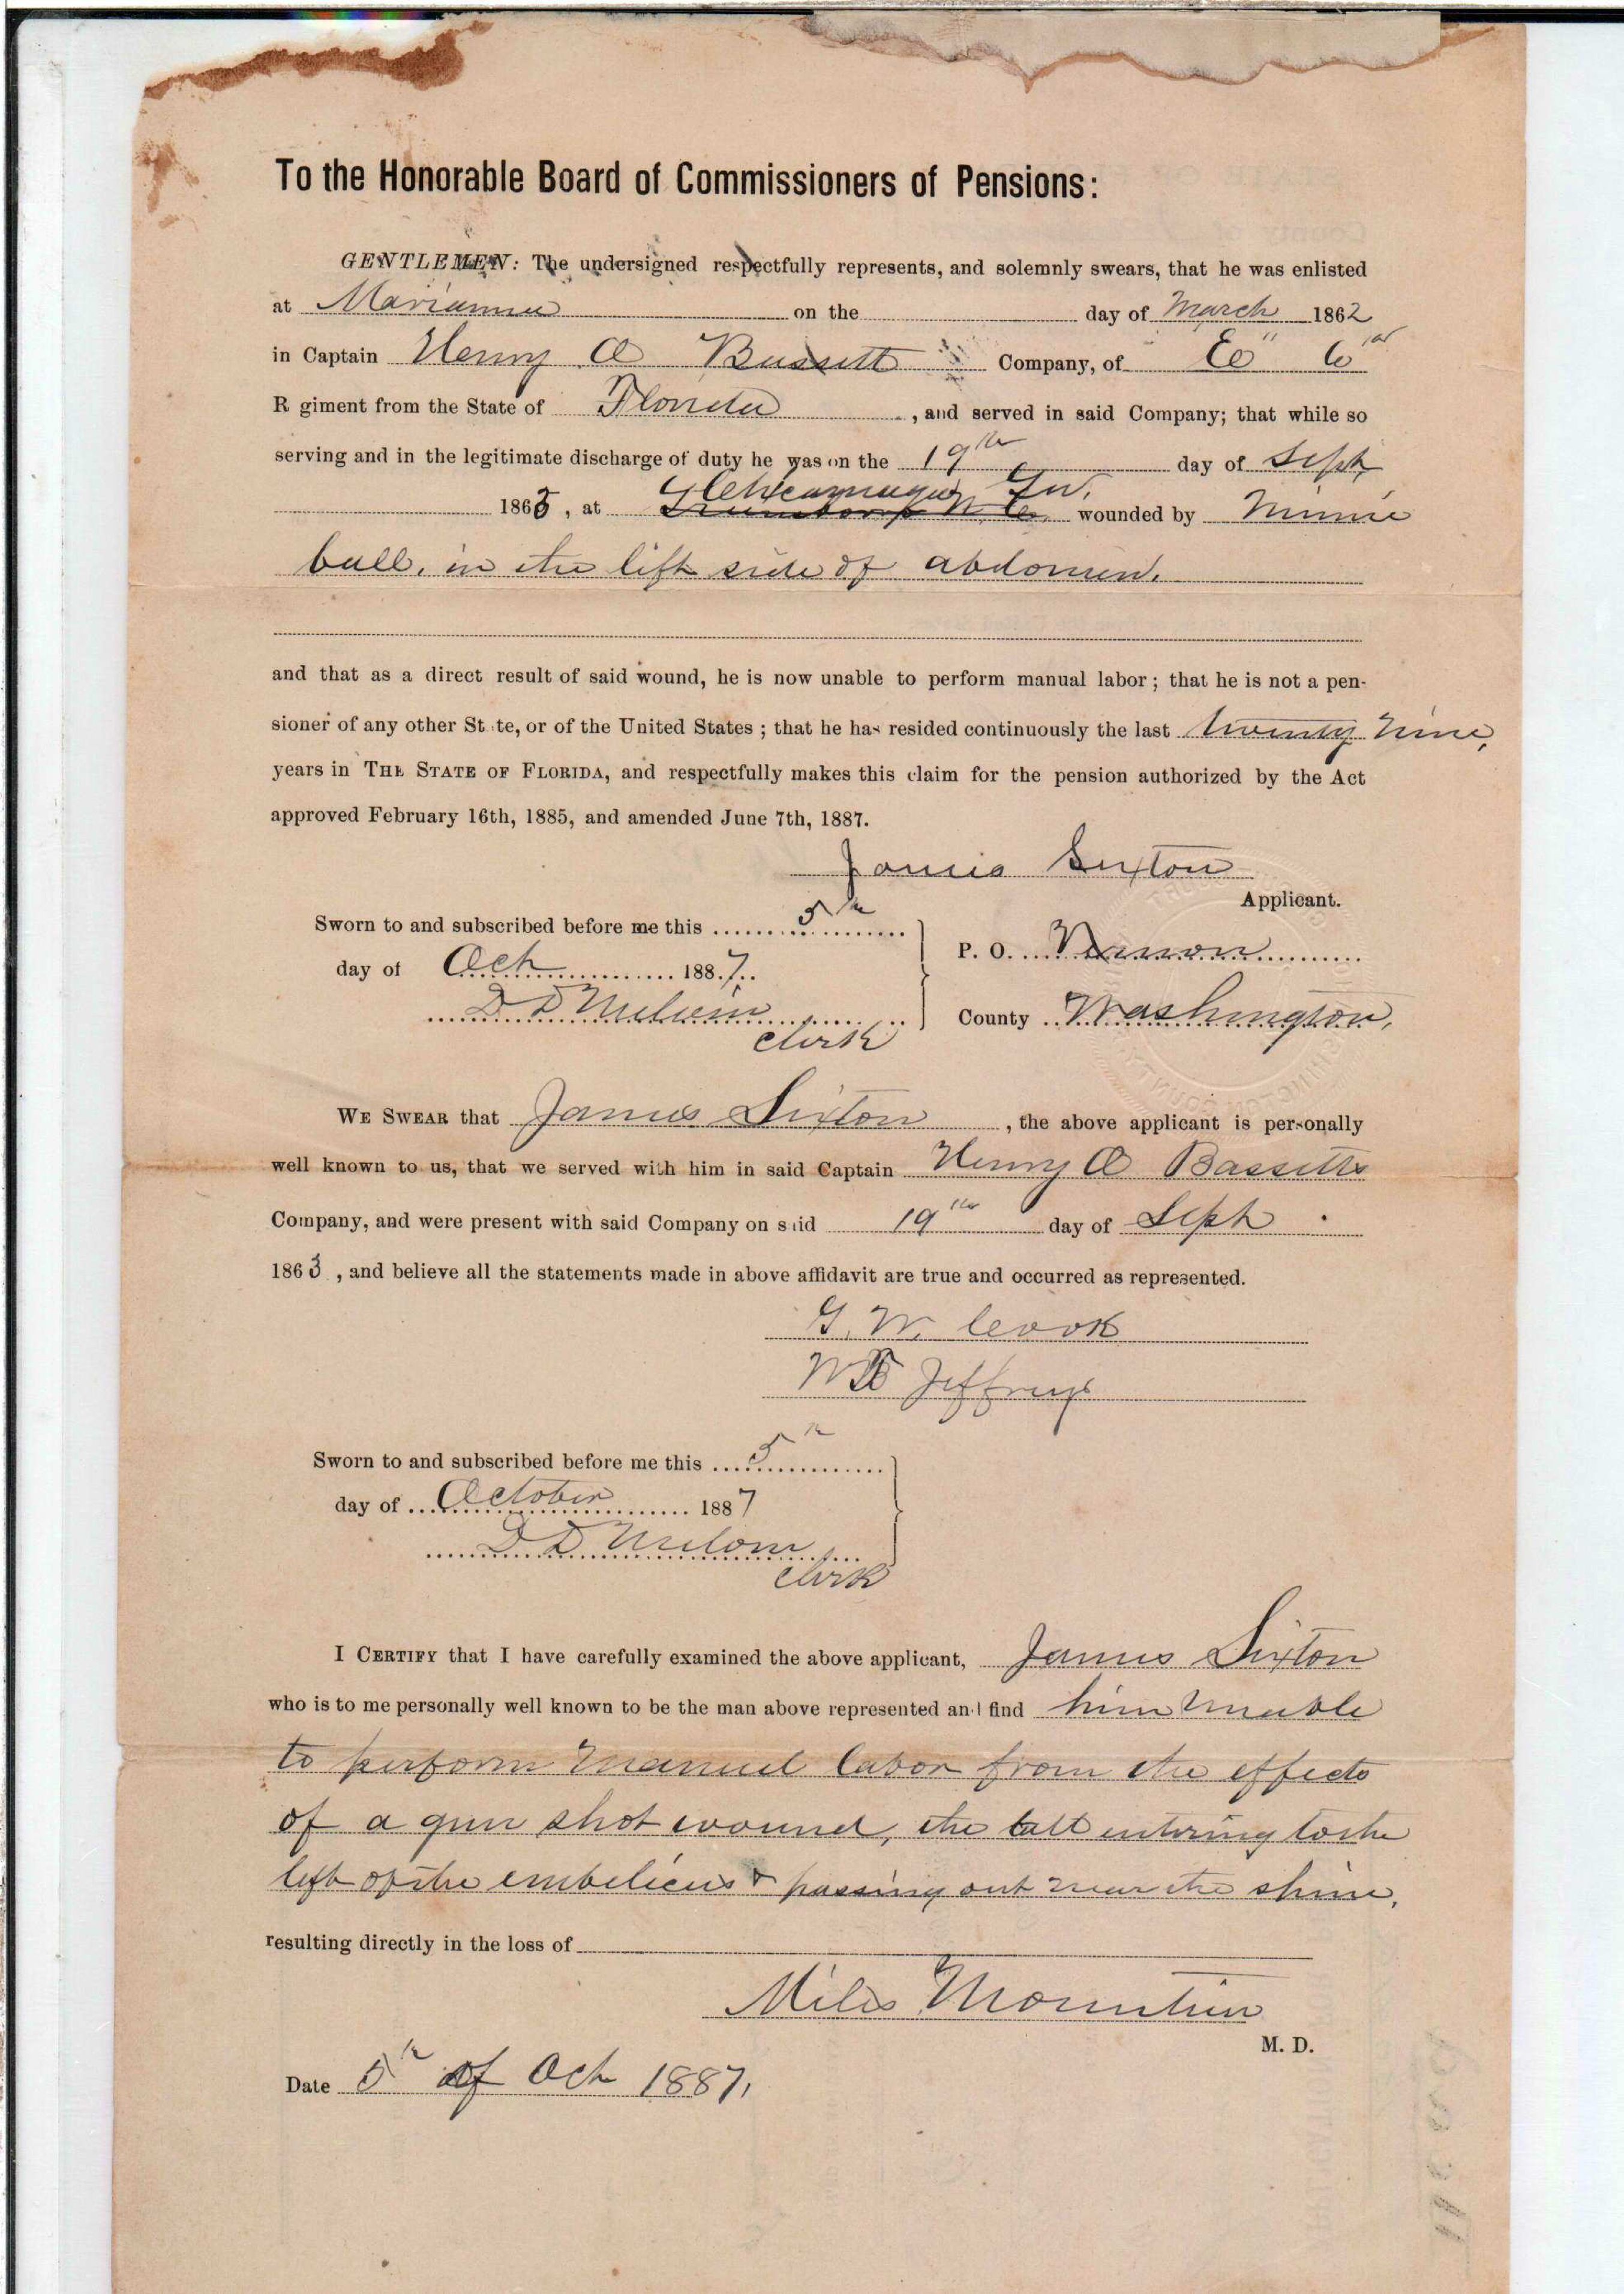 To the Honorable Board of Commissioners of Pensions:
GENTLEMEN: The undersigned respectfully represents, and solemnly swears, that he was enlisted
at Marianna on the day of March 1862
in Captain Henry O Bassett Company, of "E" 6th
R giment from the State of Florida , and served in said Company; that while so
serving and in the legitimate discharge of duty he was on the 19th day of Sept
1863, at Chicamauga Tn. wounded by Minnie
ball, in the left side of abdomen.
and that as a direct result of said wound, he is now unable to perform manual labor; that he is not a pen-
sioner of any other St te, or of the United States; that he has resided continuously the last twenty nine,
years in THE STATE OF FLORIDA, and respectfully makes this claim for the pension authorized by the Act
approved February 16th, 1885, and amended June 7th, 1887.
James Sexton
Applicant.
Sworn to and subscribed before me this 5th
day of Oct 1887.
P. O. Vernon
D D Melvin
clerk
County Washington,
WE SWEAR that James Sixton , the above applicant is personally
well known to us, that we served with him in said Captain Henry O Bassetts
Company, and were present with said Company on said 19th day of Sept
1863, and believe all the statements made in above affidavit are true and occurred as represented.
G. W. Cook
W B Jeffreys
Sworn to and subscribed before me this 5th
day of October 1887
D D Melvin
clerk
I CERTIFY that I have carefully examined the above applicant, James Sixton
who is to me personally well known to be the man above represented and find him unable
to perform manuel labor from the effects
of a gun shot wound, the ball entering to the
left of the embelicus & passing out near the spine,
resulting directly in the loss of
Miles
M. D.
Date 5th of Oct 1887,